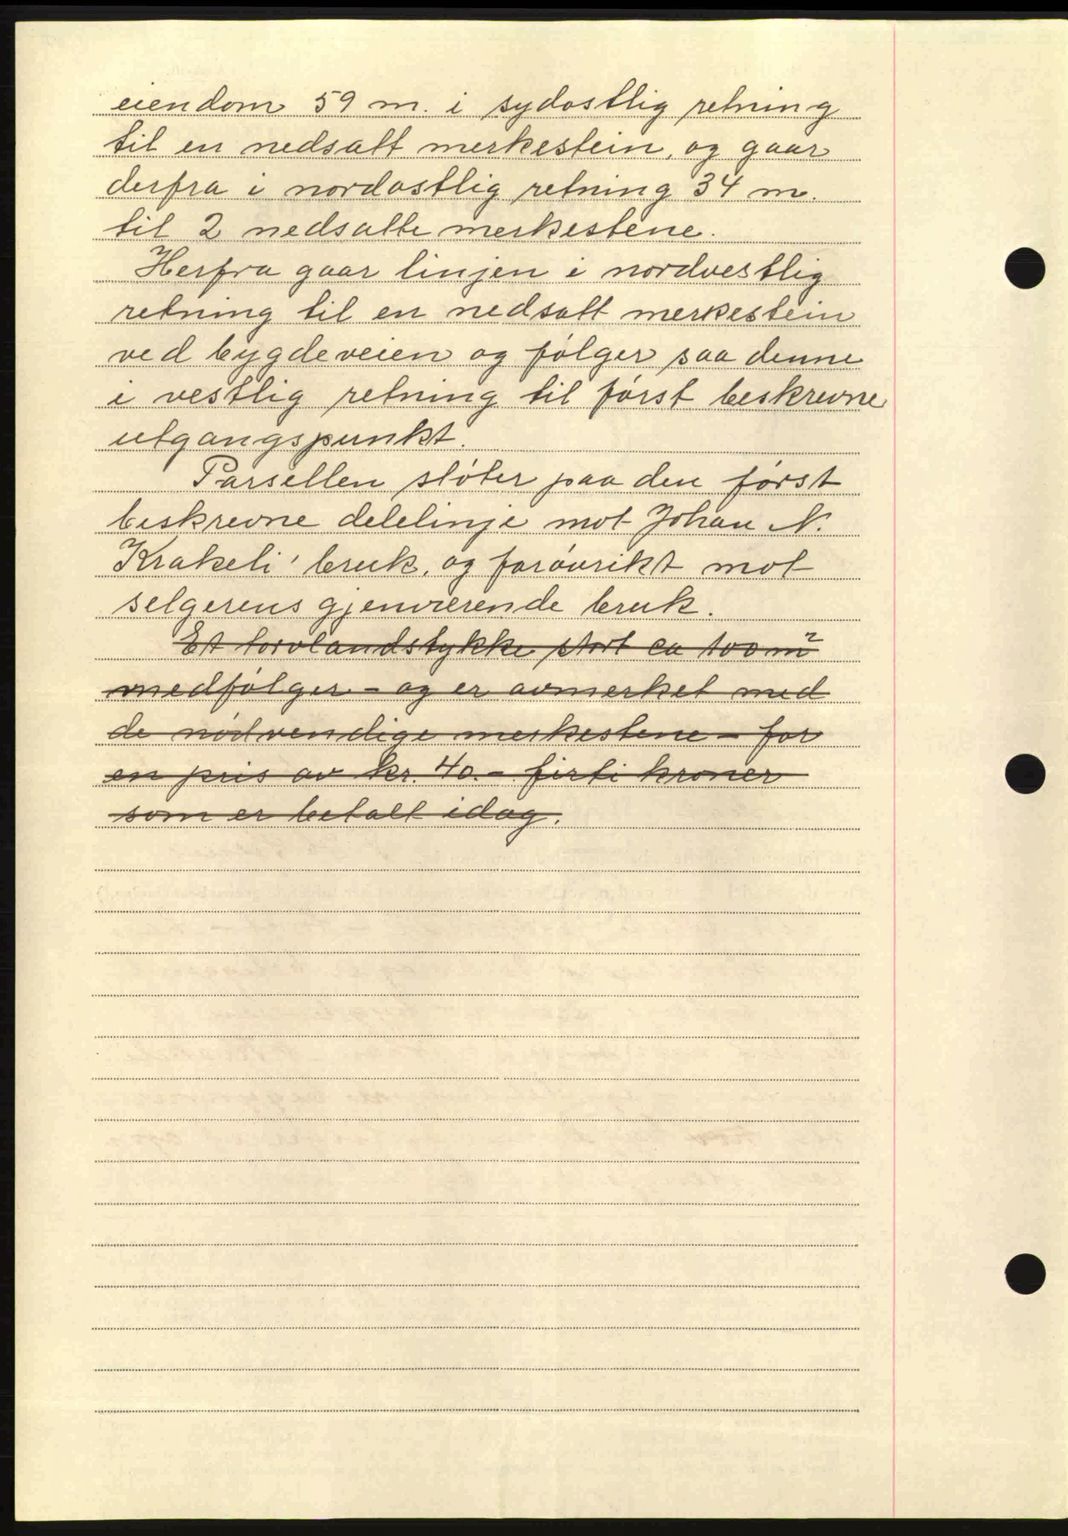 eiendom 59 m. i sydostlig retning
til en nedsatt merkestein, og gaar
derfra i nordostlig retning 34 m.
til 2 nedsatte merkestene.
Herfra gaar linjen i nordvestlig
retning til en nedsatt merkestein
ved bygdeveien og følger saa denne
i vestlig retning til først beskrevne
utgangspunkt.
Parsellen støter paa den først
beskrevne delelinje mot Johan N.
Krakeli' bruk, og forøvrikt mot
selgerens gjenværende bruk.
Et torvlandstykke stort ca 100 m²
medfølger - og er avmerket med
de nødvendige merkestene - for
en pris av kr. 40.- firti kroner
som er betalt idag.